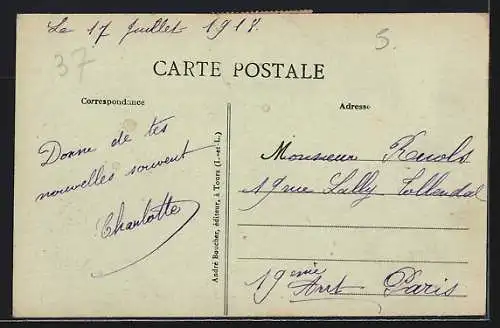 Le 17 Juillet 1917.
S.
37
CARTE POSTALE
Correspondance
Adresse
Donne de tes
nouvelles souvent
Charlotte
André Baucher, éditeur, à Tours (I.-et-L.)
Monsieur
19 rue Lally Tollendal
19eme Arrt Paris